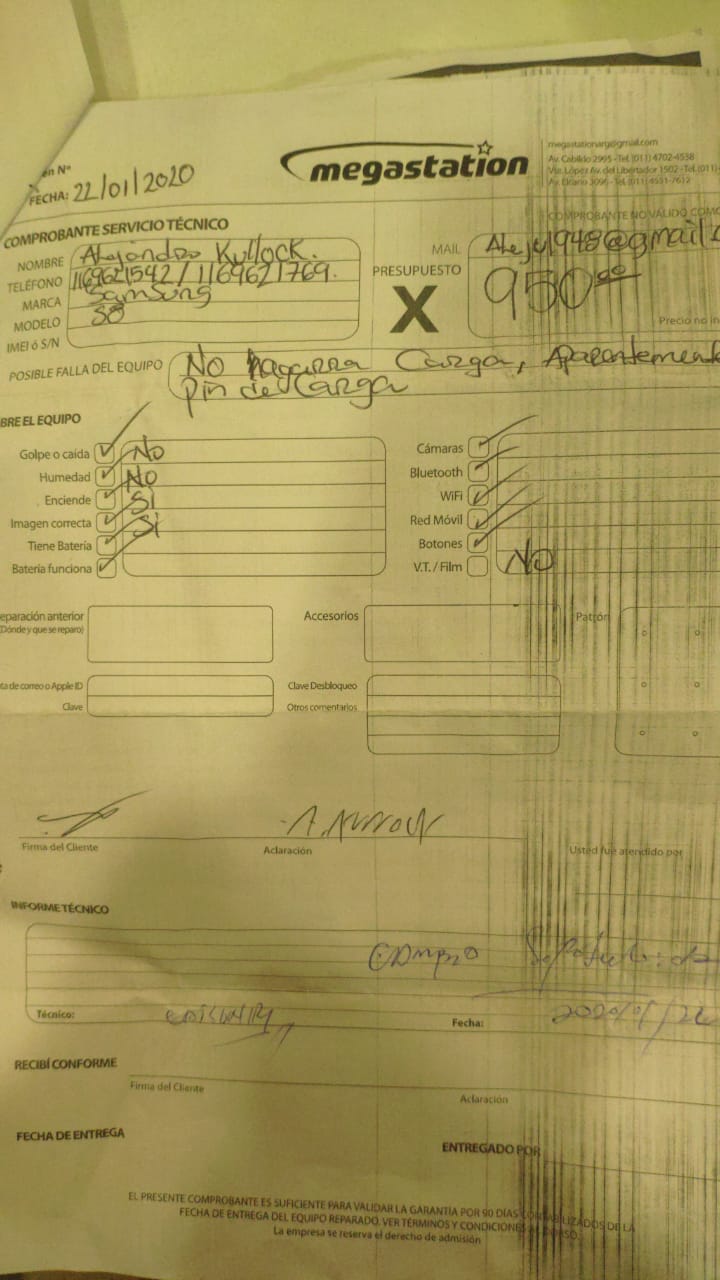 en Nº
FECHA: 22/01/2020
megastation
megastationarg@gmail.com
Av. Cabildo 2995 - Tel. (011) 4702-4538
Vte. López Av. del Libertador 1502 - Tel. (011)
Av. Elcano 3096 - Tel. (011) 4551-7612
COMPROBANTE NO VALIDO COMO
COMPROBANTE SERVICIO TÉCNICO
NOMBRE Alejandro Kullock.
TELÉFONO 1169621542 / 1169621769.
MARCA Samsung
MODELO S8
IMEI ó S/N
MAIL Aleju1948@gmail
PRESUPUESTO 950⁰⁰
X
Precio no in
POSIBLE FALLA DEL EQUIPO No hagarra Carga, Aparentemente
Pin de Carga
BRE EL EQUIPO
Golpe o caída No
Humedad No
Enciende Si
Imagen correcta Si
Tiene Batería
Batería funciona
Cámaras
Bluetooth
WiFi
Red Móvil
Botones
V.T. / Film No
eparación anterior
(Dónde y que se reparo)
Accesorios
Patrón
ta de correo o Apple ID
Clave
Clave Desbloqueo
Otros comentarios
Firma del Cliente
Aclaración
Usted fue atendido por
INFORME TÉCNICO
Cambio
Técnico:
Fecha: 2020/01/22
RECIBÍ CONFORME
Firma del Cliente
Aclaración
FECHA DE ENTREGA
ENTREGADO POR
EL PRESENTE COMPROBANTE ES SUFICIENTE PARA VALIDAR LA GARANTÍA POR 90 DIAS CONTABILIZADOS DE LA
FECHA DE ENTREGA DEL EQUIPO REPARADO. VER TÉRMINOS Y CONDICIONES AL DORSO.
La empresa se reserva el derecho de admisión